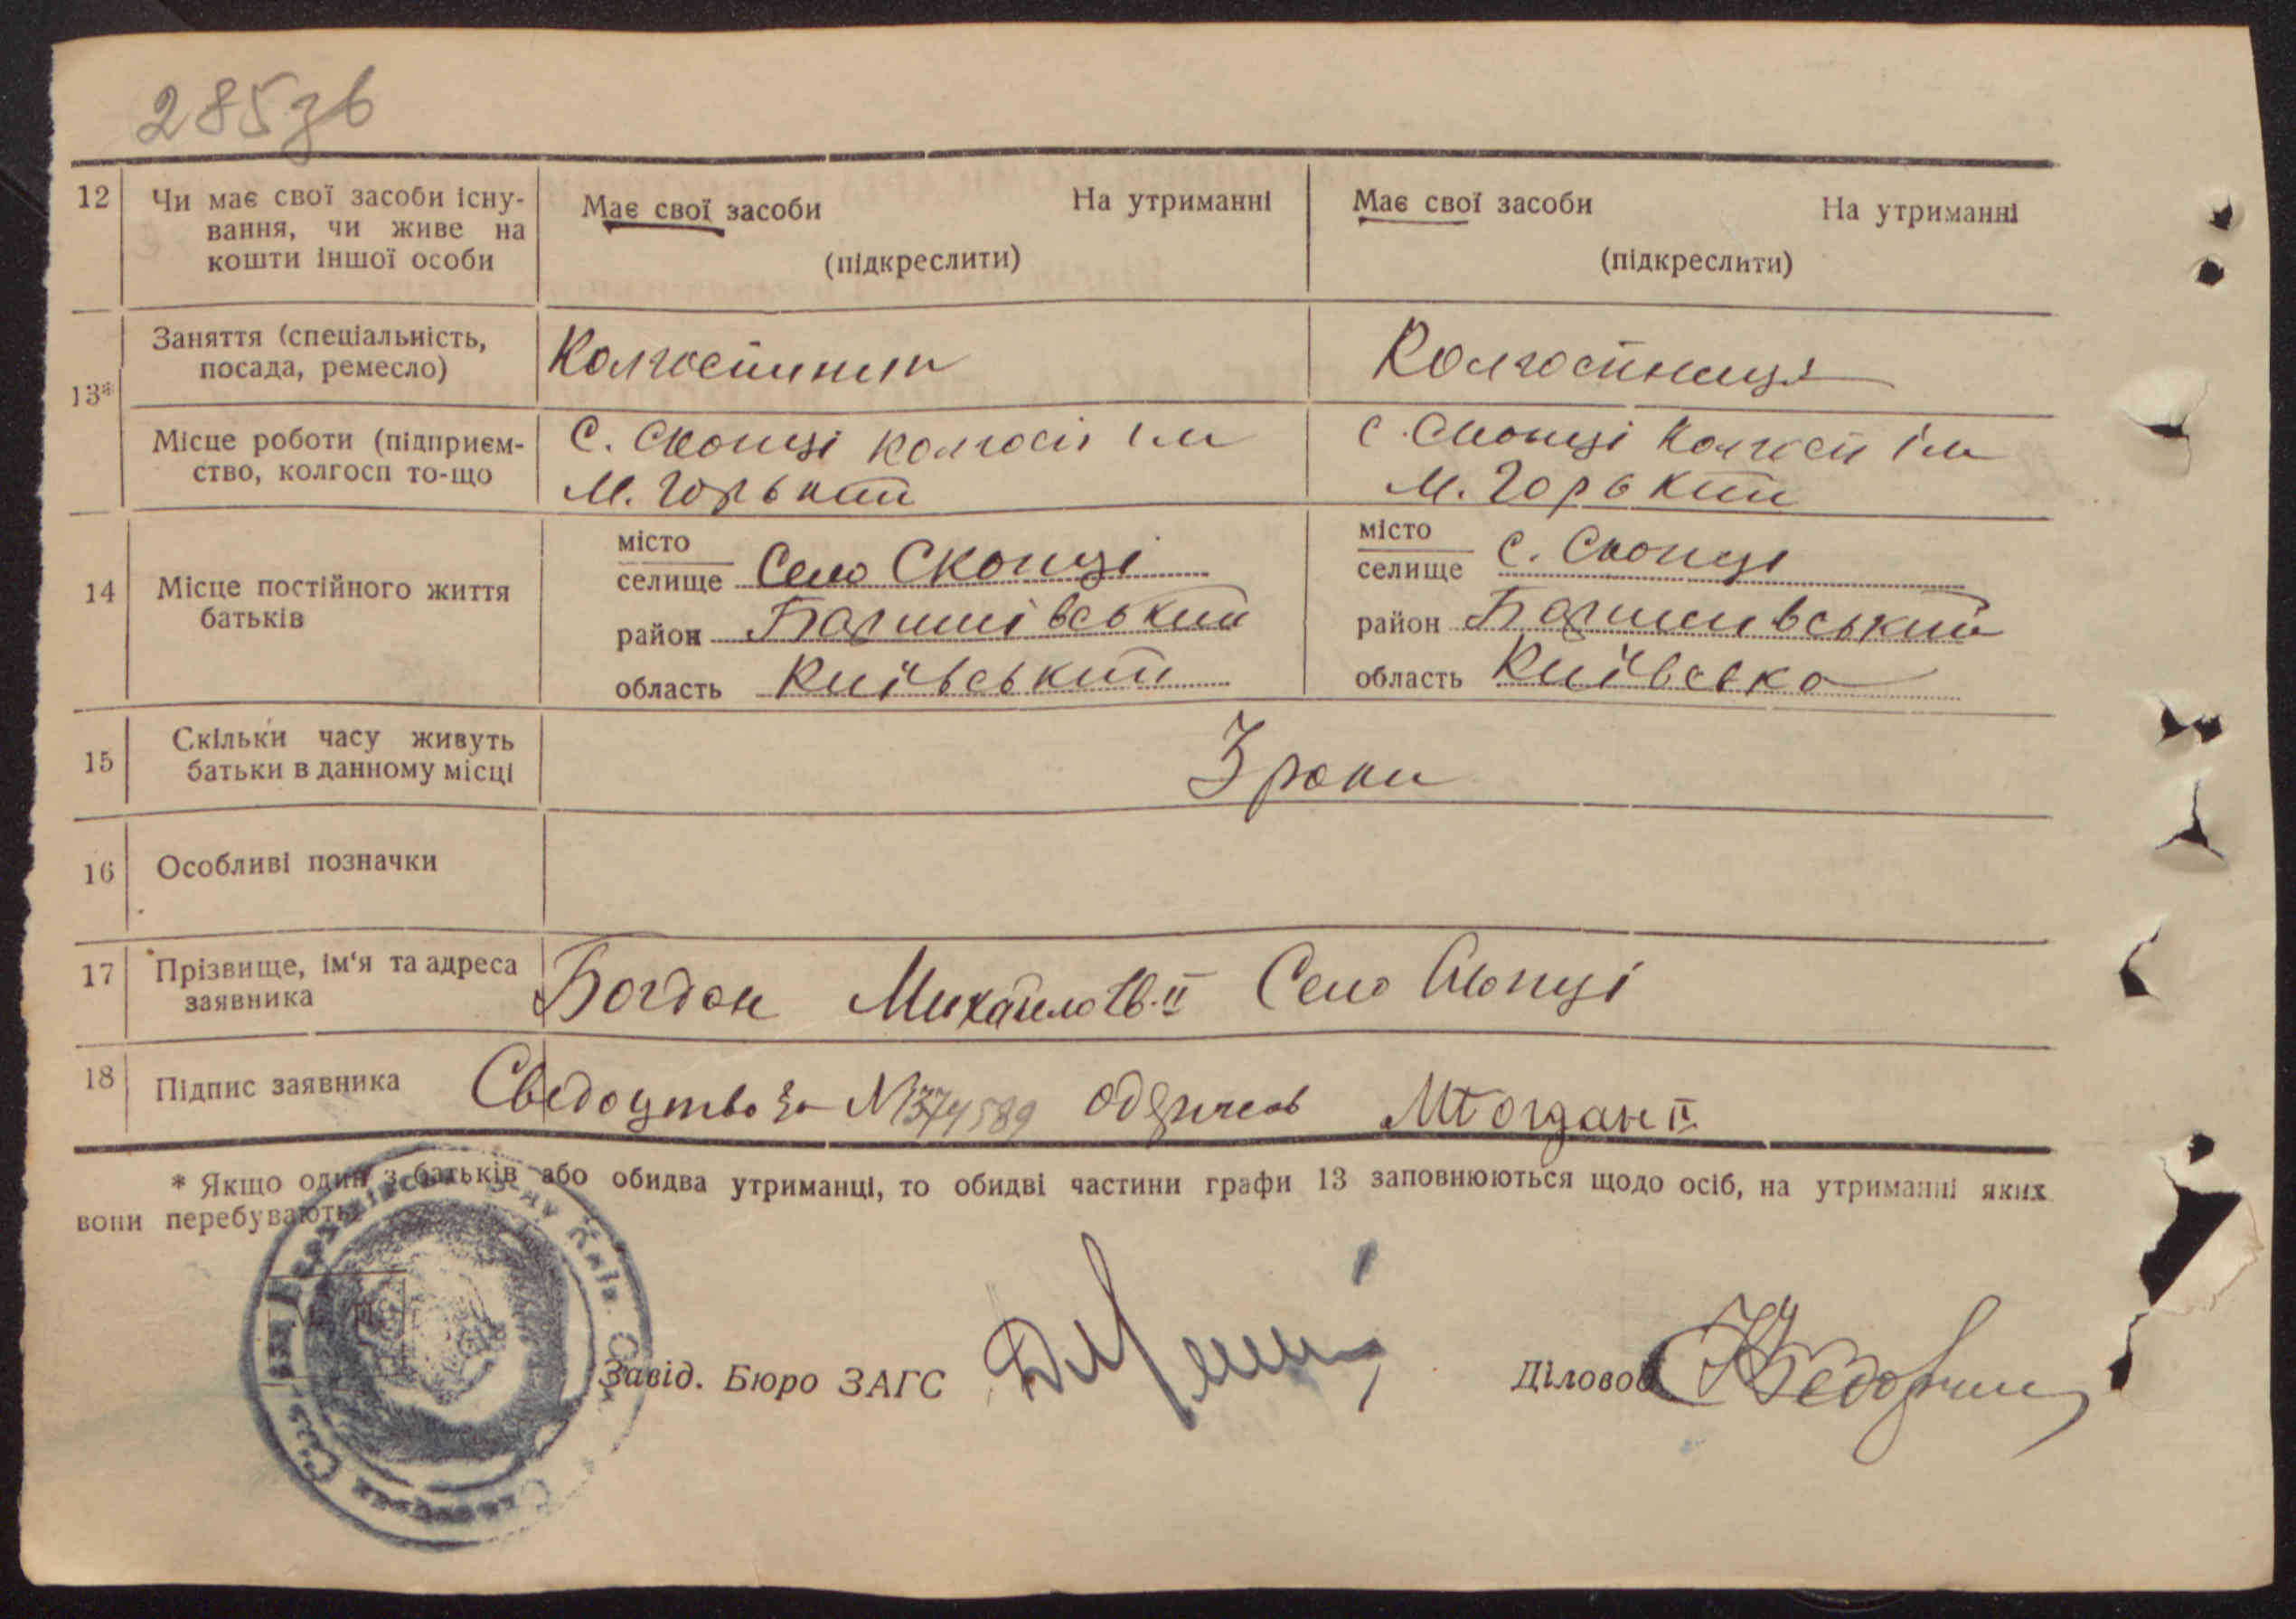 285зв
12 Чи має свої засоби існу- Має свої засоби На утриманні Має свої засоби На утриманні
вання, чи живе на
кошти іншої особи (підкреслити) (підкреслити)
13* Заняття (спеціальність, Колгоспник Колгоспниця
посада, ремесло)
Місце роботи (підприєм- С. Скопці колгосп ім с. Скопці колгосп ім
ство, колгосп то-що М. Горький М. Горький
14 Місце постійного життя місто місто
батьків селище Село Скопці селище с. Скопці
район Баришівський район Баришівський
область Київський область Київська
15 Скільки часу живуть 3 роки
батьки в данному місці
16 Особливі позначки
17 Прізвище, ім'я та адреса Богдан Михайло Ів. II Село Скопці
заявника
18 Підпис заявника Свідоцтво за № 374589 одержав МБогдан II
* Якщо один з батьків або обидва утриманці, то обидві частини графи 13 заповнюються щодо осіб, на утриманні яких
вони перебувають.
Завід. Бюро ЗАГС Діловод